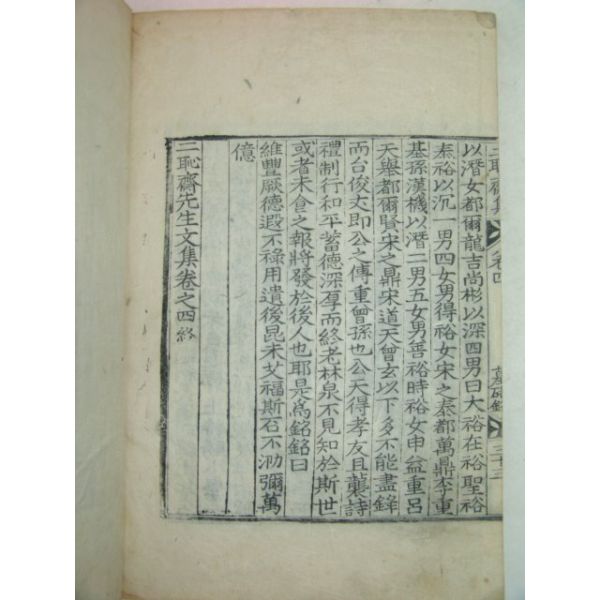 三恥齋集 卷四 墓碣銘 三十三
以潛女都爾龍吉尙彬以深四男曰大裕在裕聖裕
泰裕以沉一男四女男得裕女宋之泰都萬鼎李重
基孫漢機以潛二男五女男善裕時裕女申益重呂
天擧都爾賢宋之鼎宋道天曾玄以下多不能盡錄
而台俊丈卽公之傳重曾孫也公天得孝友且襲詩
禮制行和平蓄德深厚而終老林泉不見知於斯世
或者未食之報將發於後人也耶是爲銘銘曰
維豐厥德遐不祿用遺後昆未艾福斯石不泐彌萬
億
三恥齋先生文集卷之四終